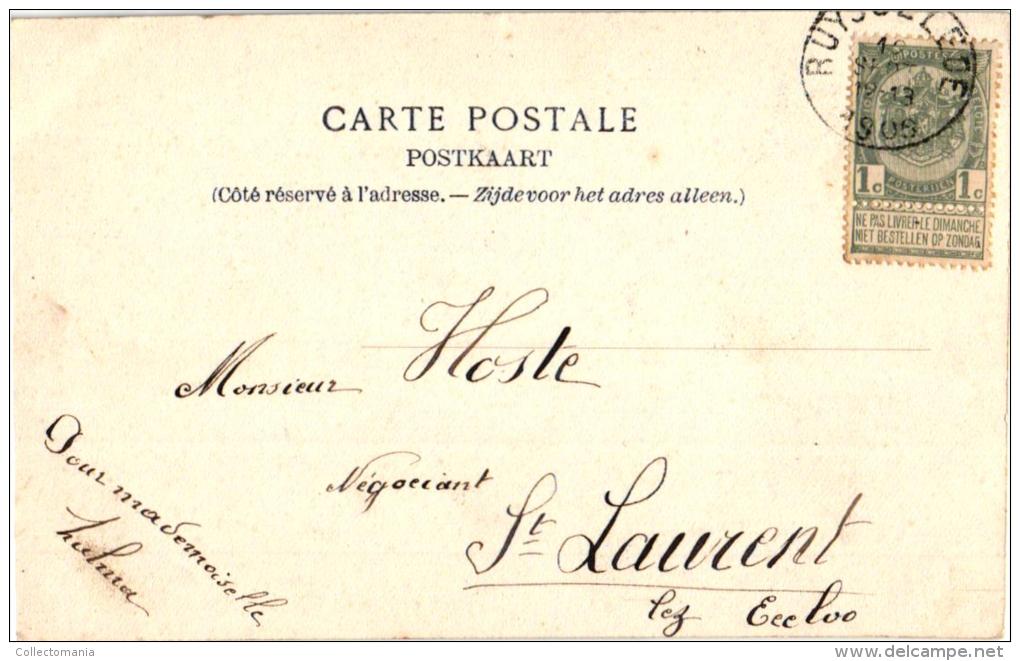 RUYSSELEDE
12-13
POSTES
1c
POSTERIJEN
1c
NE PAS LIVRER LE DIMANCHE
NIET BESTELLEN OP ZONDAG
CARTE POSTALE
POSTKAART
(Côté réservé à l'adresse. — Zijde voor het adres alleen.)
Monsieur Hoste
Négociant
St Laurent
lez Eecloo
Pour mademoiselle
Collectomania
delcampe.net